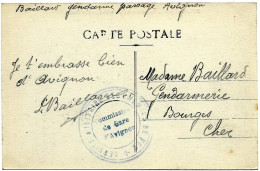 Baillard gendarme passage Avignon
CARTE POSTALE
Je t'embrasse bien
d'Avignon
Baillard
Commission
de Gare
d'Avignon
Madame Baillard
Gendarmerie
Bourges
Cher